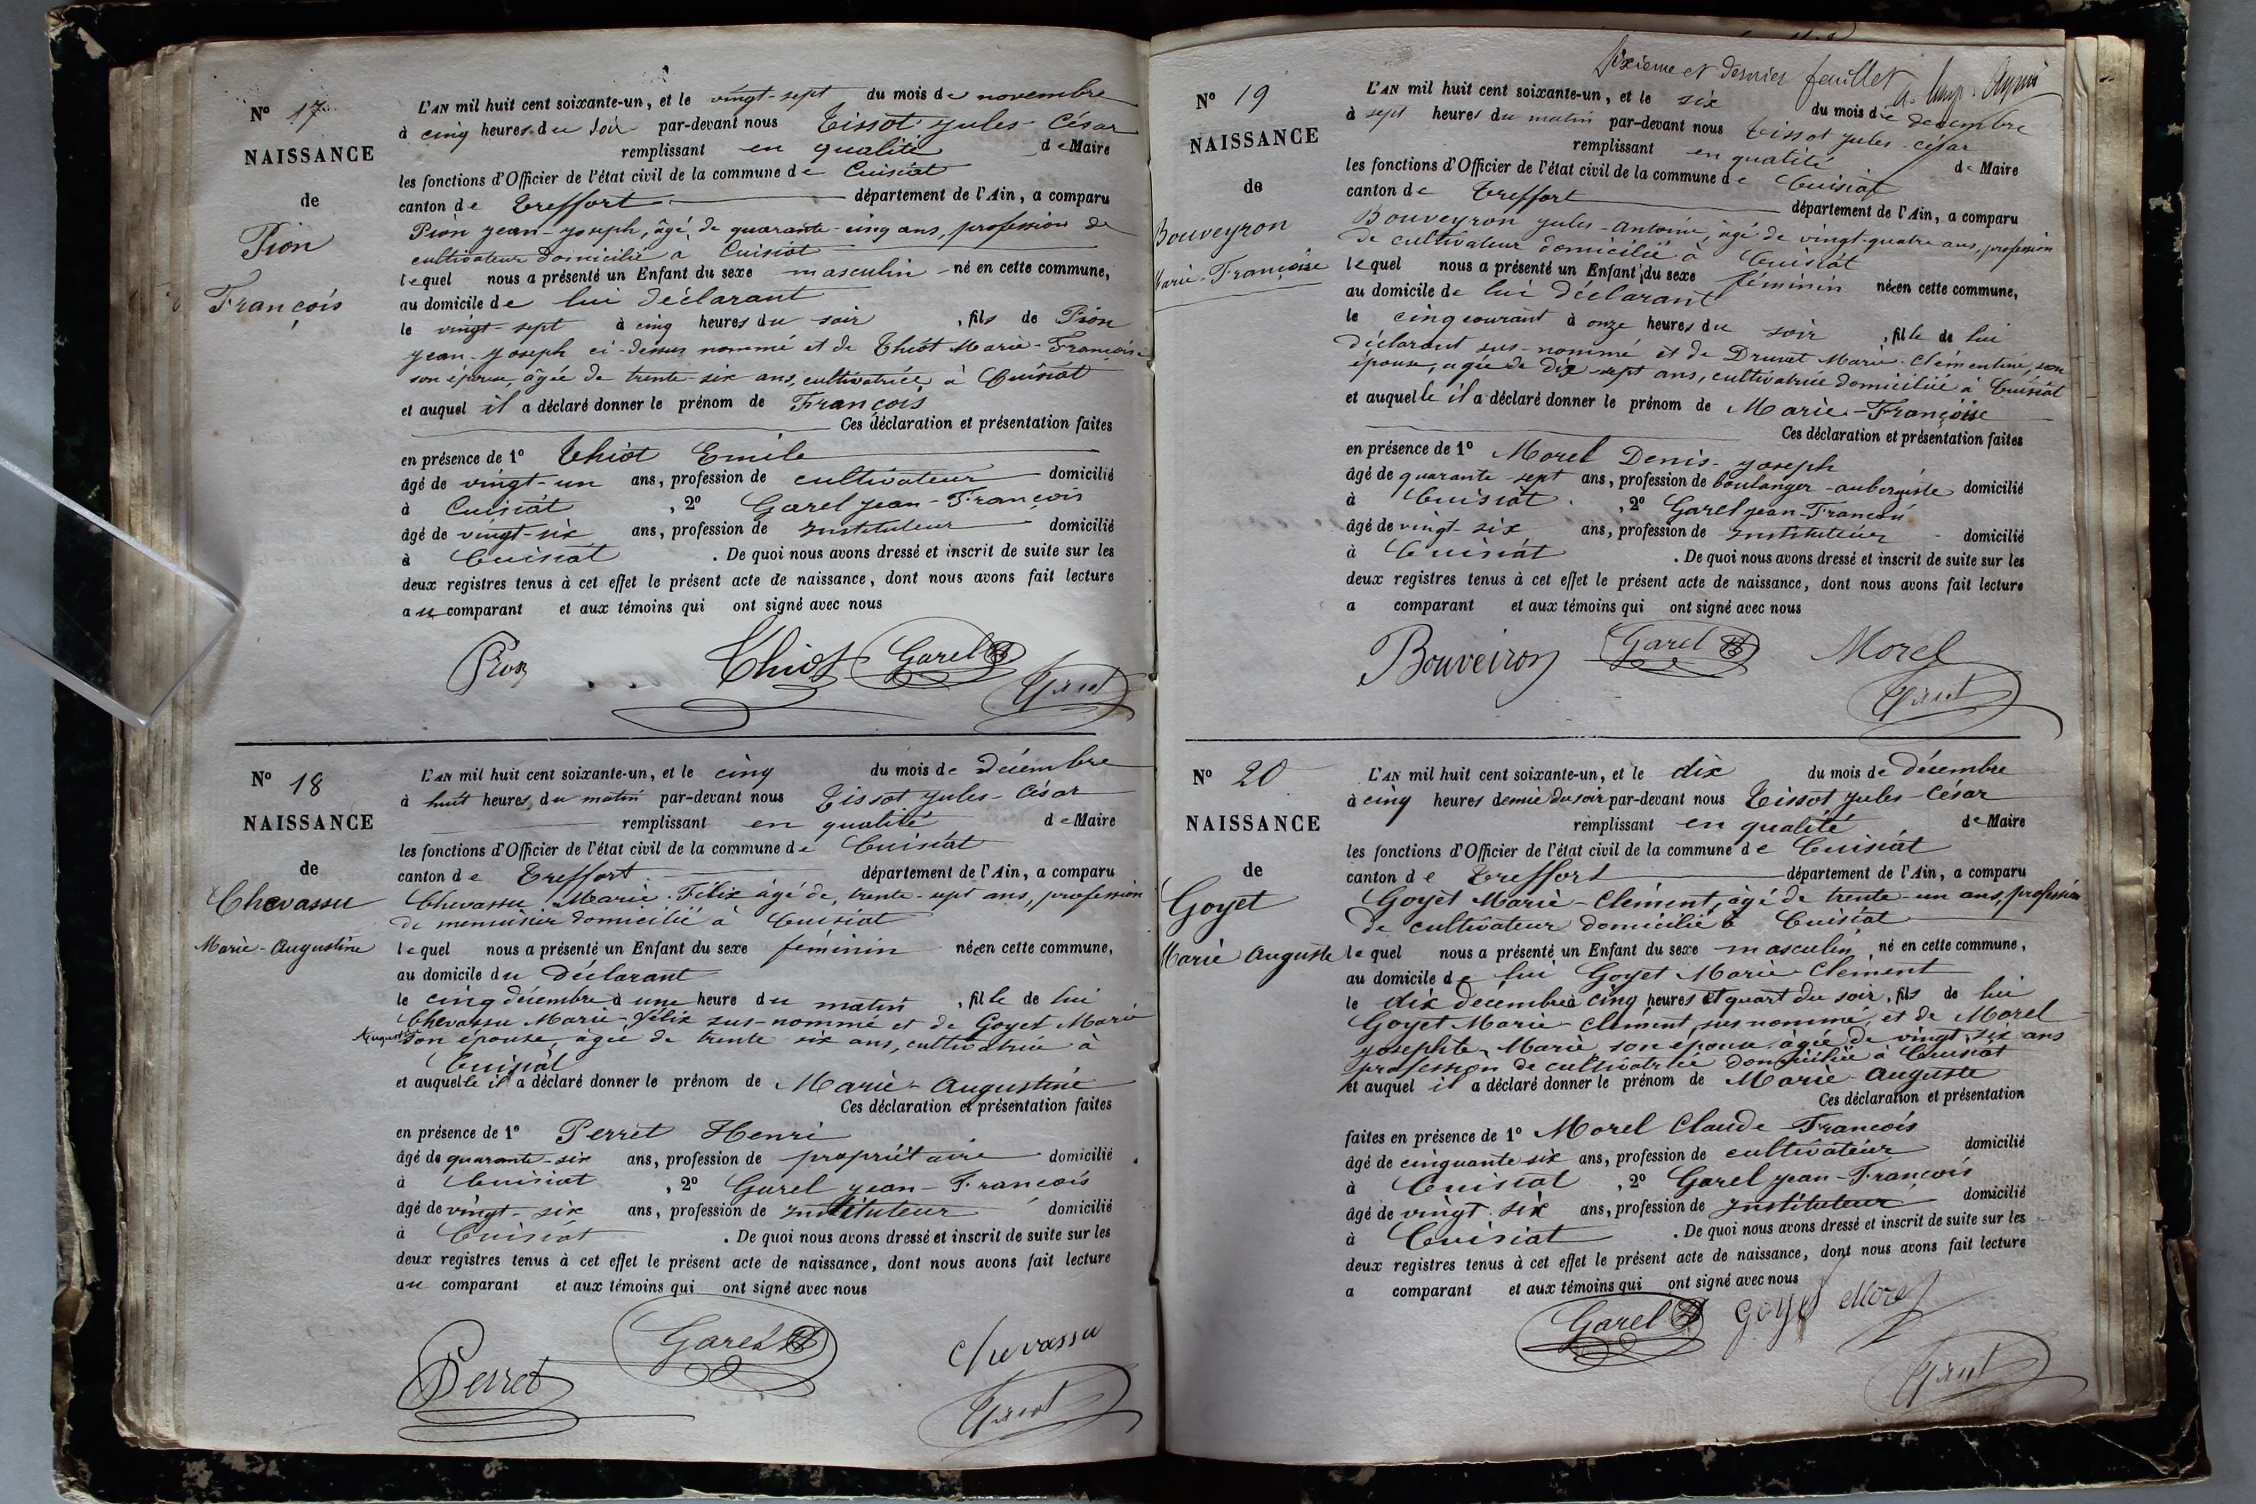 N° 17
NAISSANCE
de
Pion
François
L'AN mil huit cent soixante-un, et le vingt-sept du mois de novembre
à cinq heures du soir par-devant nous Tissot Jules-César
remplissant en qualité de Maire
les fonctions d'Officier de l'état civil de la commune de Cuisiat
canton de Treffort département de l'Ain, a comparu
Pion Jean-Joseph, âgé de quarante-cinq ans, profession de
cultivateur domicilié à Cuisiat
lequel nous a présenté un Enfant du sexe masculin né en cette commune,
au domicile de lui déclarant
le vingt-sept à cinq heures du soir, fils de Pion
Jean-Joseph ci-dessus nommé et de Thiot Marie-Françoise
son épouse, âgée de trente-six ans, cultivatrice à Cuisiat
et auquel il a déclaré donner le prénom de François
Ces déclaration et présentation faites
en présence de 1° Thiot Emile
âgé de vingt-un ans, profession de cultivateur domicilié
à Cuisiat, 2° Garel Jean-François
âgé de vingt-six ans, profession de Instituteur domicilié
à Cuisiat. De quoi nous avons dressé et inscrit de suite sur les
deux registres tenus à cet effet le présent acte de naissance, dont nous avons fait lecture
au comparant et aux témoins qui ont signé avec nous
Pion Thiot Garel
N° 18
NAISSANCE
de
Chevassu
Marie-Augustine
L'AN mil huit cent soixante-un, et le cinq du mois de décembre
à huit heures du matin par-devant nous Tissot Jules-César
remplissant en qualité de Maire
les fonctions d'Officier de l'état civil de la commune de Cuisiat
canton de Treffort département de l'Ain, a comparu
Chevassu Marie-Félix âgé de trente-sept ans, profession
de menuisier domicilié à Cuisiat
lequel nous a présenté un Enfant du sexe féminin née en cette commune,
au domicile du déclarant
le cinq décembre à une heure du matin, fille de lui
Chevassu Marie-Félix sus-nommé et de Goyet Marie
son épouse, âgée de trente six ans, cultivatrice à
Cuisiat
et auquelle il a déclaré donner le prénom de Marie-Augustine
Ces déclaration et présentation faites
en présence de 1° Perret Henri
âgé de quarante-six ans, profession de propriétaire domicilié
à Cuisiat, 2° Garel Jean-François
âgé de vingt-six ans, profession de Instituteur domicilié
à Cuisiat. De quoi nous avons dressé et inscrit de suite sur les
deux registres tenus à cet effet le présent acte de naissance, dont nous avons fait lecture
au comparant et aux témoins qui ont signé avec nous
Perret Garel Chevassu
Sixième et dernier feuillet
N° 19
NAISSANCE
de
Bouveyron
Marie-Françoise
L'AN mil huit cent soixante-un, et le six du mois de décembre
à sept heures du matin par-devant nous Tissot Jules-César
remplissant en qualité de Maire
les fonctions d'Officier de l'état civil de la commune de Cuisiat
canton de Treffort département de l'Ain, a comparu
Bouveyron Jules-Antoine, âgé de vingt-quatre ans, profession
de cultivateur domicilié à Cuisiat
lequel nous a présenté un Enfant du sexe féminin née en cette commune,
au domicile de lui déclarant
le cinq courant à onze heures du soir, fille de lui
déclarant sus-nommé et de Marie-Clémentine, son
épouse, âgée de dix-sept ans, cultivatrice domiciliée à Cuisiat
et auquelle il a déclaré donner le prénom de Marie-Françoise
Ces déclaration et présentation faites
en présence de 1° Morel Denis-Joseph
âgé de quarante sept ans, profession de boulanger-aubergiste domicilié
à Cuisiat, 2° Garel Jean-François
âgé de vingt-six ans, profession de Instituteur domicilié
à Cuisiat. De quoi nous avons dressé et inscrit de suite sur les
deux registres tenus à cet effet le présent acte de naissance, dont nous avons fait lecture
a comparant et aux témoins qui ont signé avec nous
Bouveiron Garel Morel
N° 20
NAISSANCE
de
Goyet
Marie Auguste
L'AN mil huit cent soixante-un, et le dix du mois de décembre
à cinq heures demie du soir par-devant nous Tissot Jules-César
remplissant en qualité de Maire
les fonctions d'Officier de l'état civil de la commune de Cuisiat
canton de Treffort département de l'Ain, a comparu
Goyet Marie-Clément, âgé de trente-un ans, profession
de cultivateur domicilié à Cuisiat
lequel nous a présenté un Enfant du sexe masculin né en cette commune,
au domicile de lui Goyet Marie-Clément
le dix décembre à cinq heures et quart du soir, fils de lui
Goyet Marie-Clément sus nommé, et de Morel
Josephte-Marie son épouse âgée de vingt-six ans
profession de cultivatrice domiciliée à Cuisiat
et auquel il a déclaré donner le prénom de Marie-Auguste
Ces déclaration et présentation
faites en présence de 1° Morel Claude-François
âgé de cinquante six ans, profession de cultivateur domicilié
à Cuisiat, 2° Garel Jean-François
âgé de vingt-six ans, profession de Instituteur domicilié
à Cuisiat. De quoi nous avons dressé et inscrit de suite sur les
deux registres tenus à cet effet le présent acte de naissance, dont nous avons fait lecture
a comparant et aux témoins qui ont signé avec nous
Garel Goyet Morel